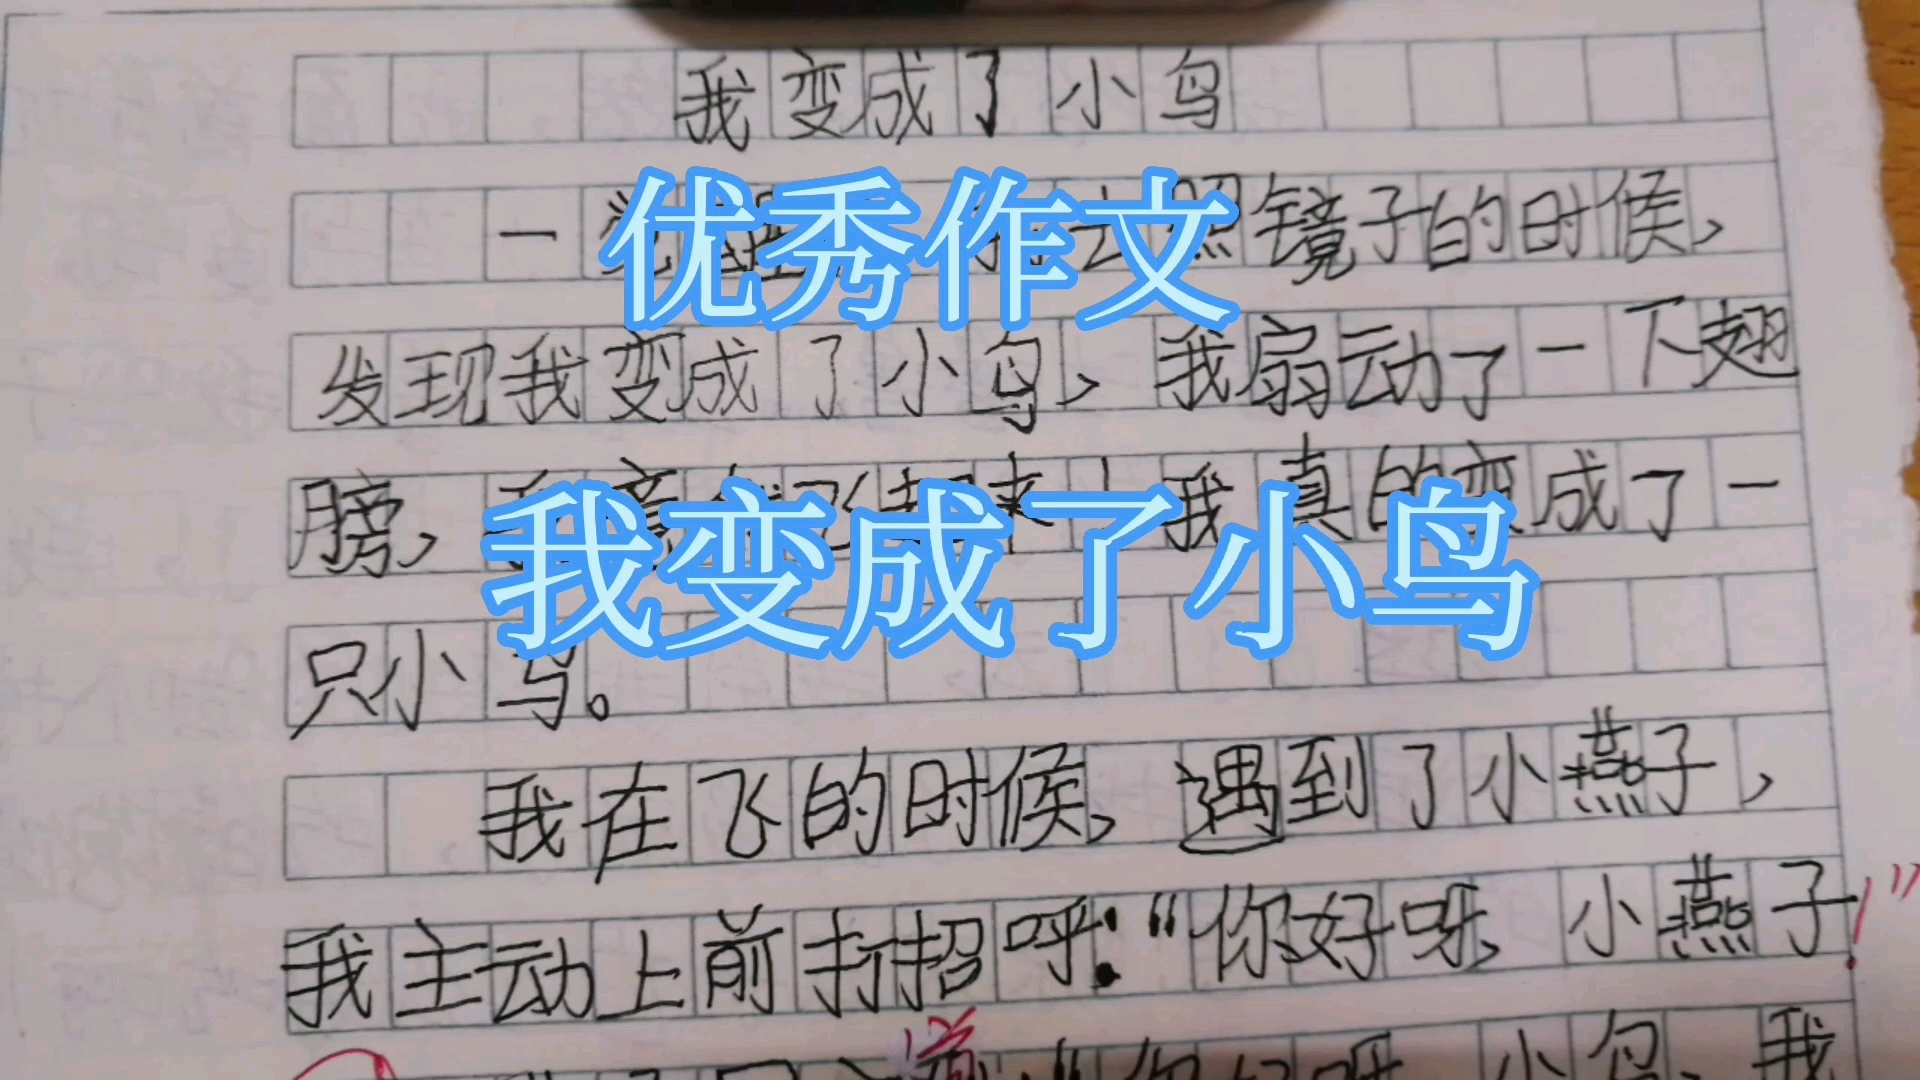 我变成了小鸟
优秀作文
一觉醒 照镜子的时候，
发现我变成了小鸟，我扇动了一下翅
膀，我竟然飞起来！我真的变成了一
我变成了小鸟
只小鸟。
我在飞的时候，遇到了小燕子，
我主动上前打招呼：“你好呀，小燕子！”
道：“你好呀，小鸟，我